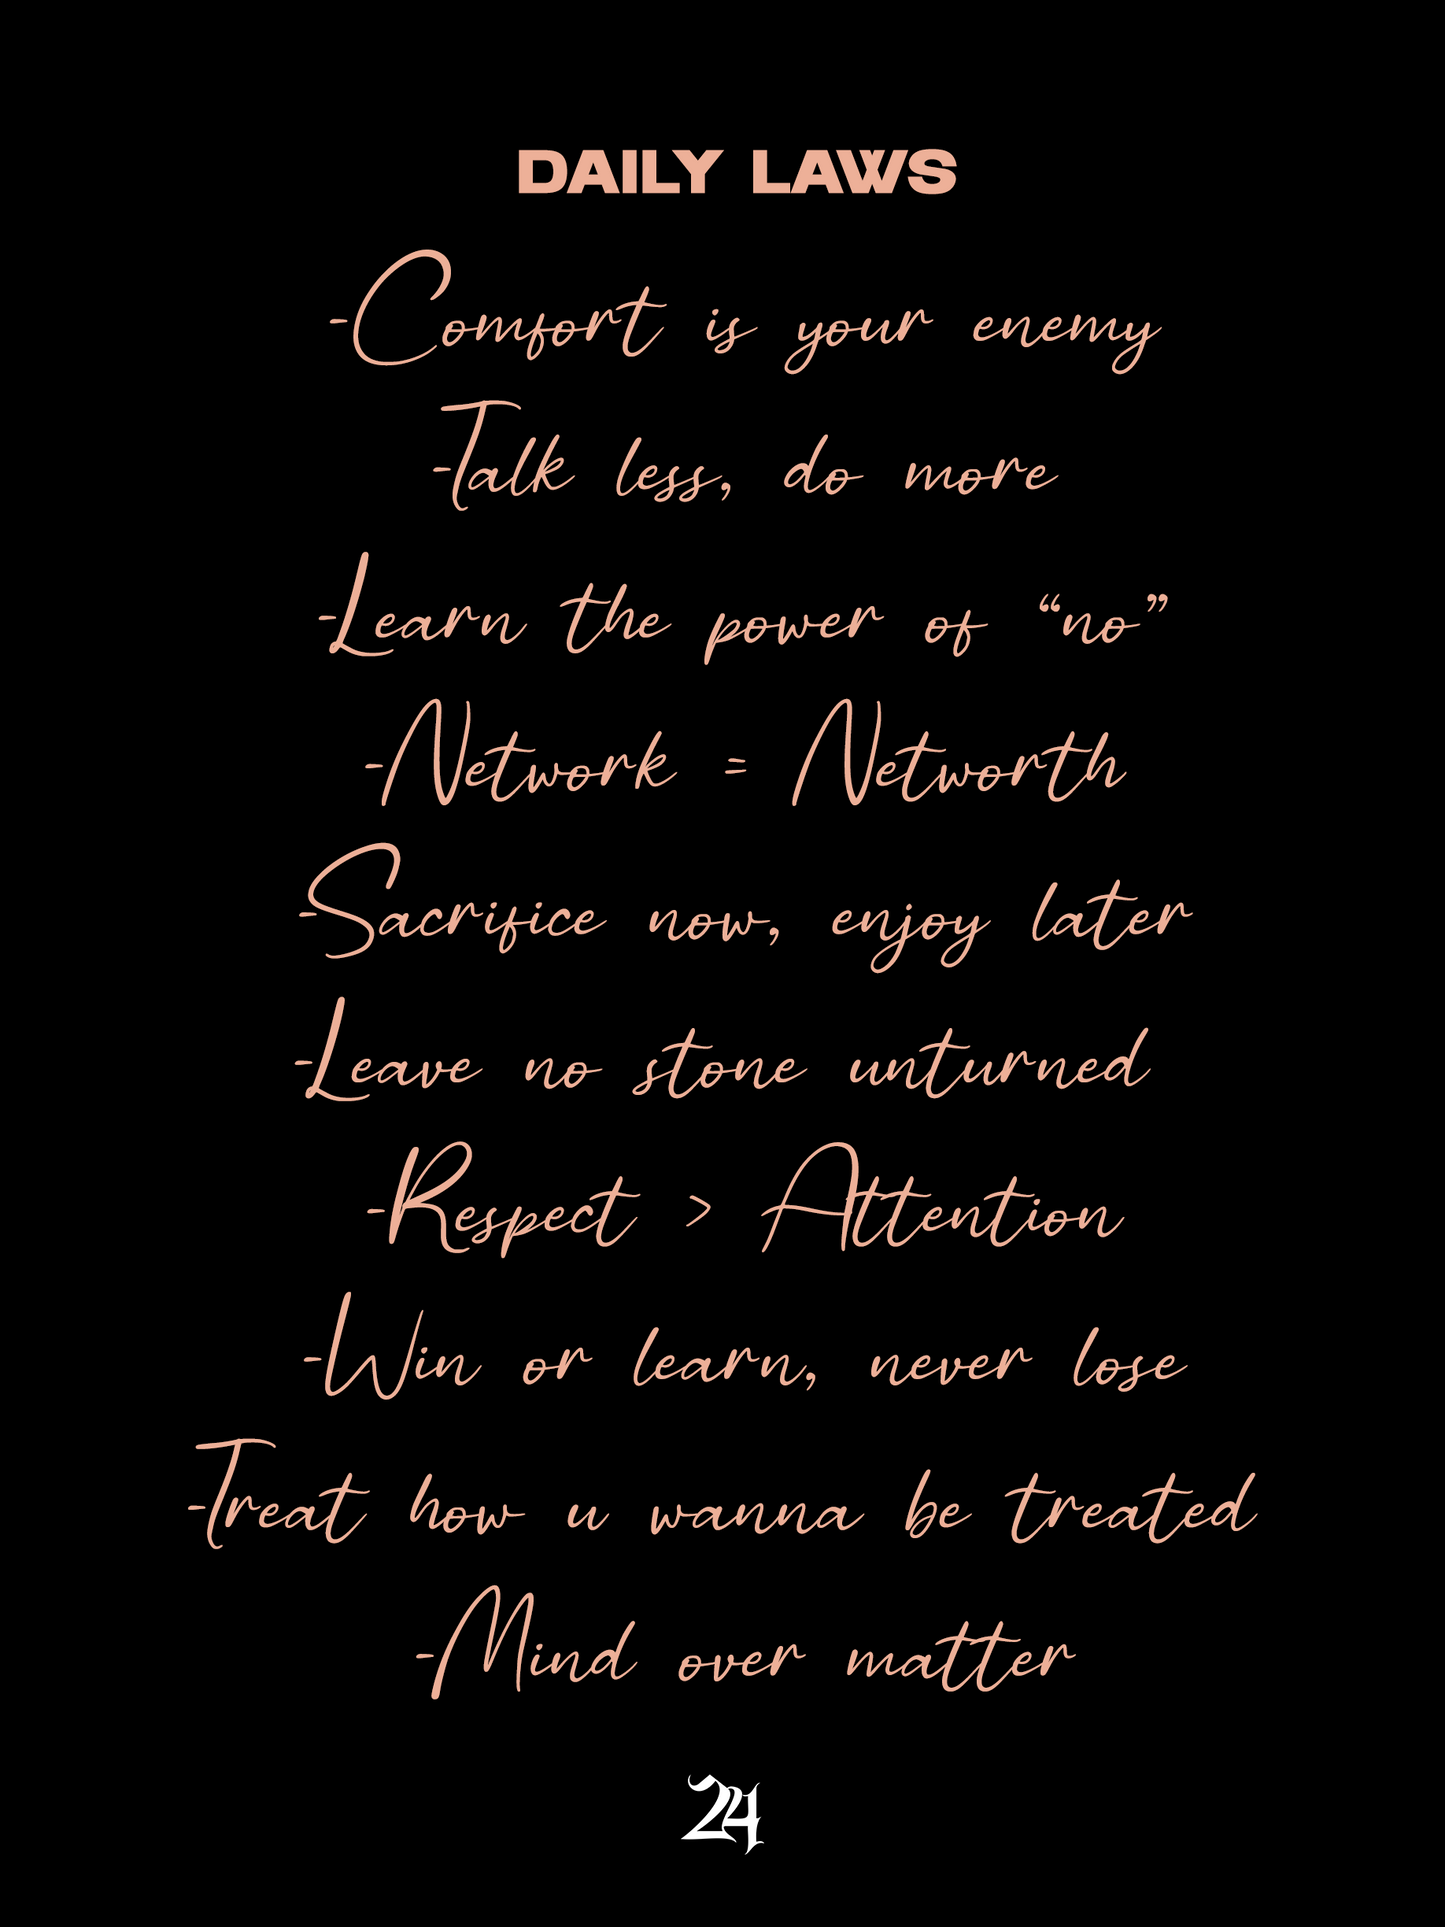 DAILY LAWS
-Comfort is your enemy
-Talk less, do more
-Learn the power of “no”
-Network = Networth
-Sacrifice now, enjoy later
-Leave no stone unturned
-Respect > Attention
-Win or learn, never lose
-Treat how u wanna be treated
-Mind over matter
24